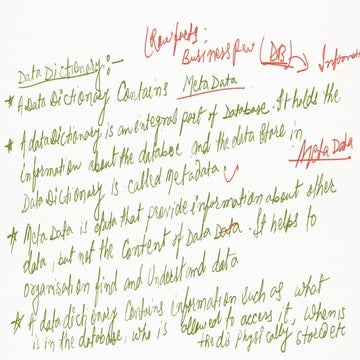 (Rawfacts:
Business Rew (DB)→ Informat
Data Dictionary:-
* A Data Dictionary Contains MetaData
* A data Dictionary is an integral part of Database. It holds the
information about the database and the data store in
Data Dictionary is called Metadata. MetaData
* Meta Data is data that provide information about other
data, but not the content of Data Data. It helps to
organisation find and understand data
* A data dictionary contains information such as what
is in the database, who is allowed to access it, when is
the db physically stored etc